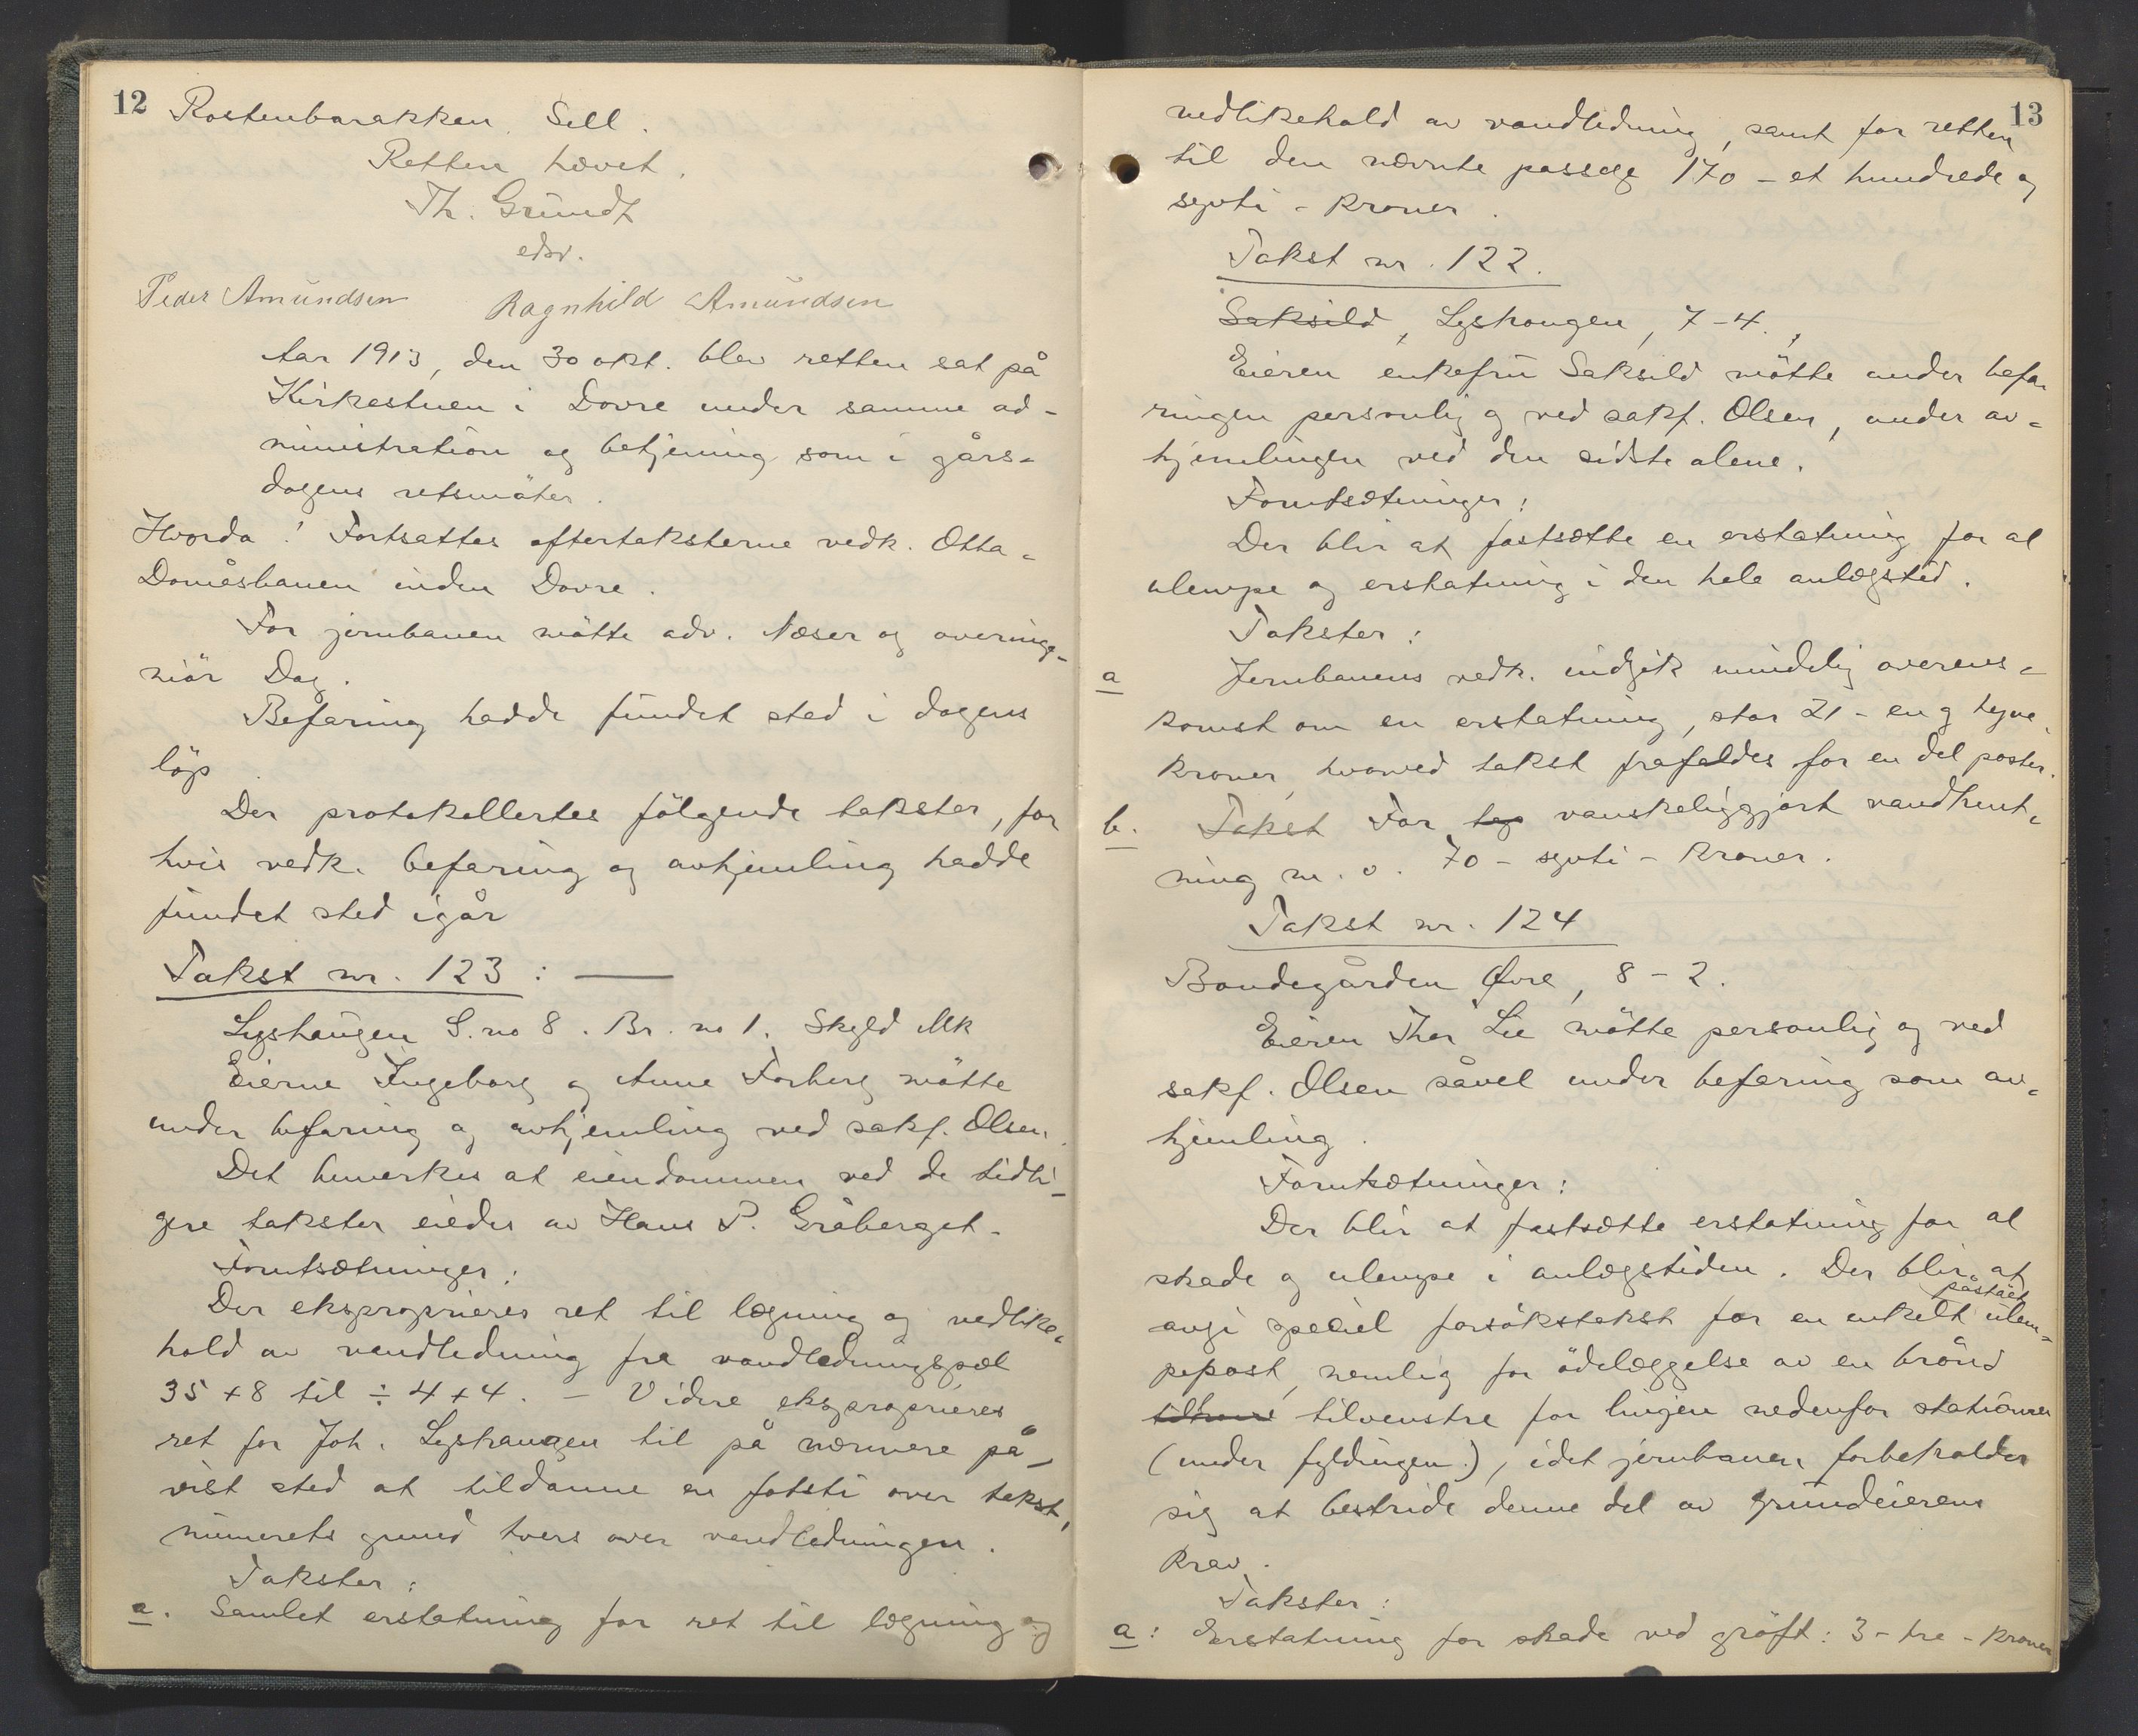 12
Rostenbarakken. Sell.
Retten hævet.
Th. Grundt
edsv.
Peder Amundsen Ragnhild Amundsen
Aar 1913, den 30 okt. blev retten sat på
Kirkestuen i Dovre under samme ad-
ministration og betjening som i gårs-
dagens retsmöter.
Hvorda! Fortsattes eftertaksterne vedk. Otta-
Domåsbanen inden Dovre.
For jernbanen mötte adv. Næser og overinge-
niör Dag.
Befaring hadde fundet sted i dagens
löp.
Der protokollertes fölgende takster, for
hvis vedk. befaring og avhjemling hadde
fundet sted igår
Takst nr. 123: —
Lyshaugen G.no 8. Br. no 1. Skyld Mk
Eierne Ingeborg og Anne Forberg mötte
under befaring og avhjemling ved sakf. Olsen.
Det bemerkes at eiendommen ved de tidli-
gere takster eiedes av Hans P. Gråberget.
Forutsætninger:
Der eksproprieres ret til lægning og vedlike-
hold av vandledning fra vandledningspæl
35 + 8 til ÷ 4 + 4. — Videre eksproprieres
ret for Joh. Lyshaugen til på nærmere på-
vist sted at tildanne en fotsti over takst-
numerets grund tvers over vandledningen.
Takster:
a. Samlet erstatning for ret til lægning og
13
vedlikehold av vandledning, samt for retten
til den nævnte passage 170 - et hundrede og
sytti - kroner.
Takst nr. 122.
Saksild, Lyshaugen, 7-4.,
Eieren enkefru Saksild mötte under befa
ringen personlig og ved sakf. Olsen, under av-
hjemlingen ved den sidste alene.
Forutsætninger:
Der blir at fastsætte en erstatning for al
ulempe og erstatning i den hele anlægstid.
Takster:
a Jernbanens vedk. indgik mindelig overens-
komst om en erstatning, stor 21 - en og tyve
kroner, hvorved takst frafaldes for en del poster.
b. Takst For tap vanskeliggjort vandhent-
ning m. v. 70 - sytti - kroner.
Takst nr. 124
Bondegården Øvre, 8-2.
Eieren Thor Lie mötte personlig og ved
sakf. Olsen såvel under befaring som av-
hjemling.
Forutsætninger:
Der blir at fastsætte erstatning for al
skade og ulempe i anlægstiden. Der blir at
påstået
avgi speciel forsökstakst for en enkelt ulem-
pepost, nemlig for ödelæggelse av en brönd
tilvenstre for linjen nedenfor stationen
(under fyldingen.), idet jernbanen forbeholder
sig at bestride denne del av grundeierens
krav.
Takster:
a: Erstatning for skade ved gröft: 3 - tre - kroner